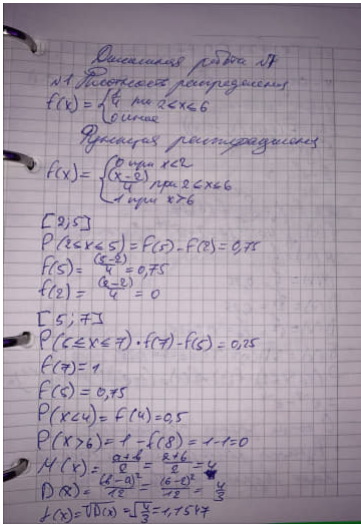 Домашняя работа №7
№1 Плотность распределения
f(x) = { 1/4 при 2≤x≤6
0 иначе
Функция распределения
f(x) = { 0 при x<2
(x-2)/4 при 2≤x≤6
1 при x>6
[2,5]
P(2≤x≤5) = f(5) - f(2) = 0,75
f(5) = (5-2)/4 = 0,75
f(2) = (2-2)/4 = 0
[5;7]
P(5≤x≤7) = f(7) - f(5) = 0,25
f(7) = 1
f(5) = 0,75
P(x<4) = f(4) = 0,5
P(x>6) = 1 - f(8) = 1-1=0
M(x) = (a+b)/2 = (2+6)/2 = 4
D(x) = (b-a)²/12 = (6-2)²/12 = 4/3
√D(x) = √4/3 = 1,1547